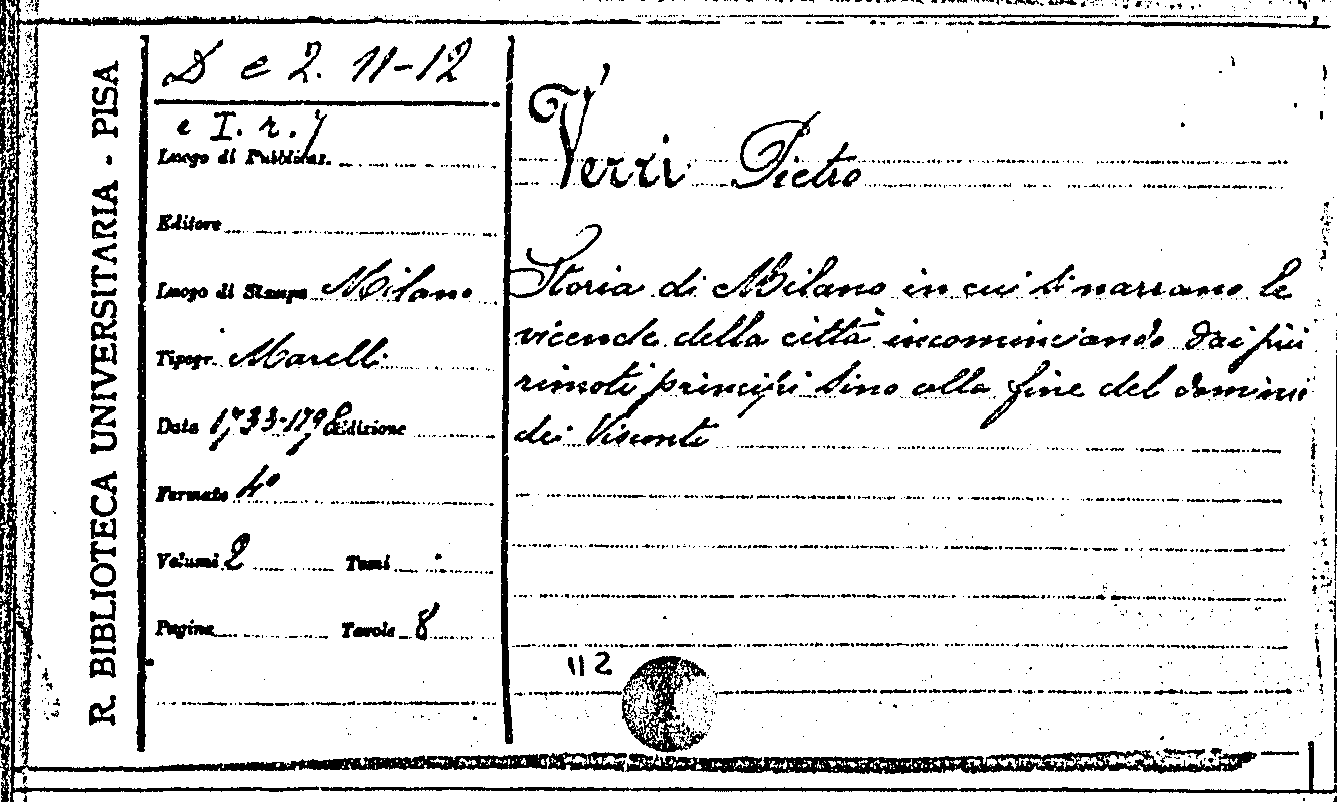 R. BIBLIOTECA UNIVERSITARIA - PISA
D e 2. 11-12
e I. r. 7
Luogo di Pubblicaz.
Editore
Luogo di Stampa Milano
Tipogr. Marelli
Data 1733-1798 Edizione
Formato 4º
Volumi 2 Tomi
Pagine Tavole 8
Verri Pietro
Storia di Milano in cui si narrano le
vicende della città incominciando dai più
rimoti principi sino alla fine del dominio
dei Visconti
112